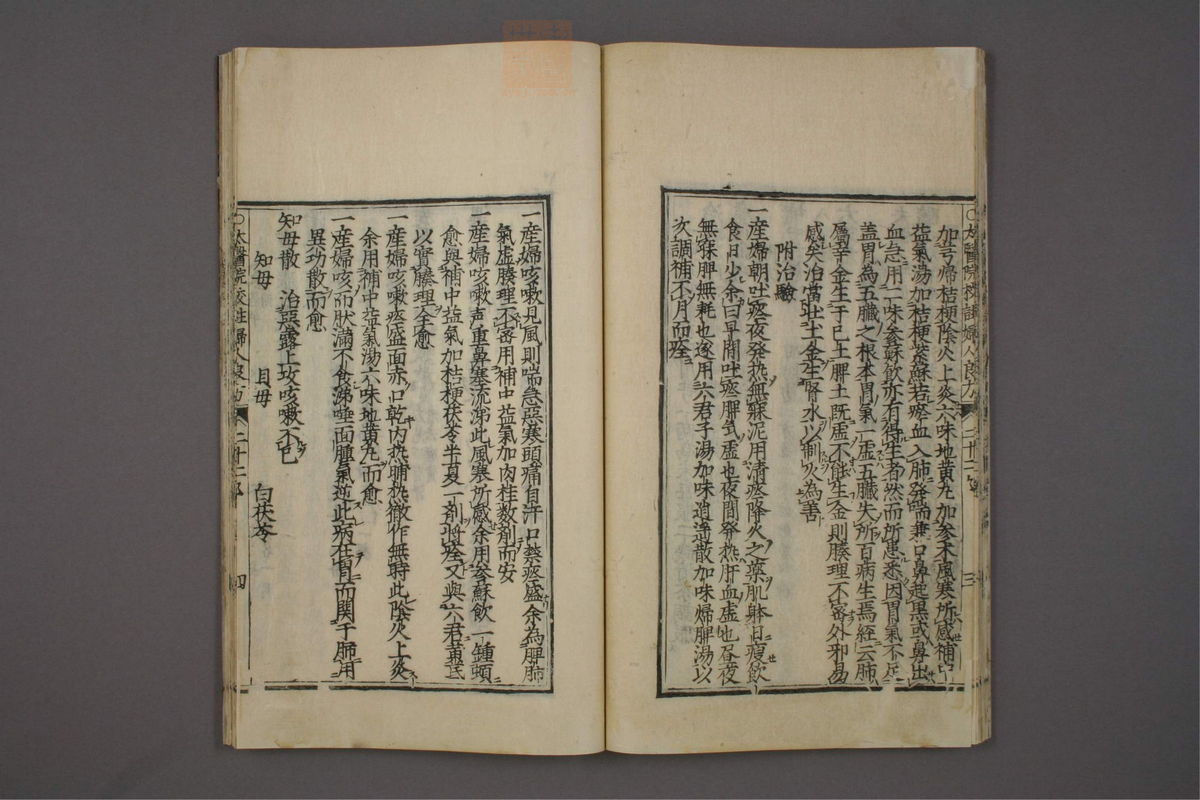 〇太醫院校註婦人良方 二十二 三
加芎歸桔梗陰火上炎六味地黄丸加参末風寒所感補中
益氣湯加桔梗紫蘇若瘀血入肺発喘兼口鼻起黒或鼻出
血急用二味参蘇飲亦有得生者然而所患悉因胃氣不足
蓋胃為五臓之根本胃氣一虚五臓失所百病生焉経云肺
属辛金生于己土脾土既虚不能生金則腠理不密外邪易
感矣治當壮土金生腎水以制火為善
附治驗
一産婦朝吐痰夜発熱無寐泥用清痰降火之藥肌躰日瘦飲
食日少余曰早間吐痰脾気虚也夜間発热肝血虚也昼夜
無寐脾無耗也遂用六君子湯加味逍遥散加味帰脾湯以
次調補不月而痊
一産婦咳嗽見風則喘急惡寒頭痛自汗口禁痰盛余為脾肺
氣虚腠理不密用補中益氣加肉桂数剤而安
一産婦咳嗽声重鼻塞流涕此風寒所感余用参蘇飲一鍾頓
愈與補中益氣加桔梗茯苓半夏一剤將痊又與六君黄芪
以實腠理全愈
一産婦咳嗽痰盛面赤口乾内热晡热徹作無時此陰火上炎
余用補中益氣湯六味地黄丸而愈
一産婦咳而肚滿不食涕唾面腫氣逆此病在胃而関于肺用
異功散而愈
知母散 治惡露上攻咳嗽不已
知母 貝母 白茯苓
〇太醫院校註婦人良方 二十二 四